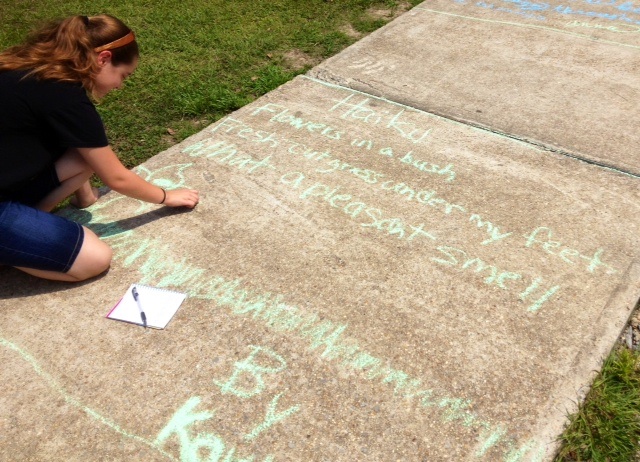 Haiku
Flowers in a bush
Fresh cut grass under my feet
What a pleasant smell
By